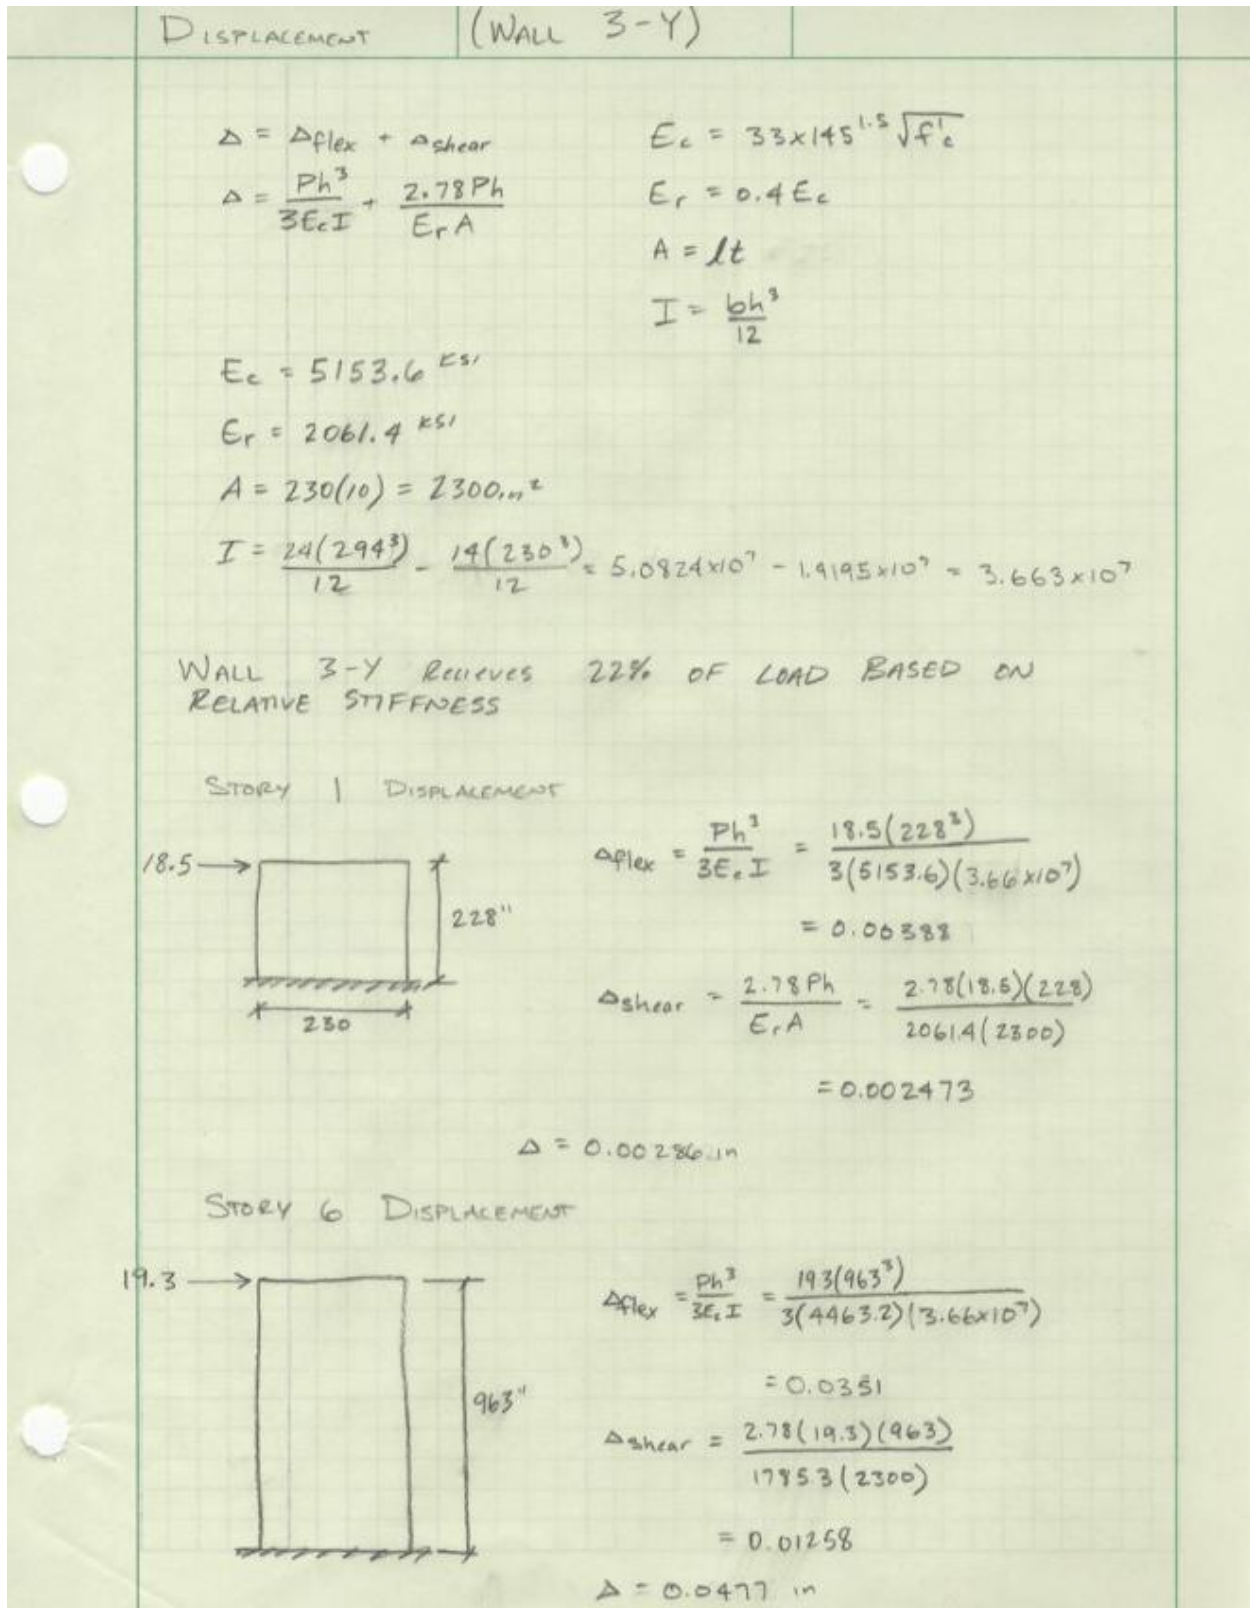 DISPLACEMENT (WALL 3-Y)
Δ = Δflex + Δshear
Δ = Ph³/3EcI + 2.78Ph/ErA
Ec = 33x145^1.5 √f'c
Er = 0.4Ec
A = lt
I = bh³/12
Ec = 5153.6 KSI
Er = 2061.4 KSI
A = 230(10) = 2300in²
I = 24(294³)/12 - 14(230³)/12 = 5.0824x10⁷ - 1.4195x10⁷ = 3.663x10⁷
WALL 3-Y Recieves 22% OF LOAD BASED ON
RELATIVE STIFFNESS
STORY 1 DISPLACEMENT
18.5
228"
230
Δflex = Ph³/3EcI = 18.5(228³)/3(5153.6)(3.66x10⁷)
= 0.00388
Δshear = 2.78Ph/ErA = 2.78(18.5)(228)/2061.4(2300)
= 0.002473
Δ = 0.00286in
STORY 6 DISPLACEMENT
19.3
963"
Δflex = Ph³/3EcI = 193(963³)/3(4463.2)(3.66x10⁷)
= 0.0351
Δshear = 2.78(19.3)(963)/1785.3(2300)
= 0.01258
Δ = 0.0477 in